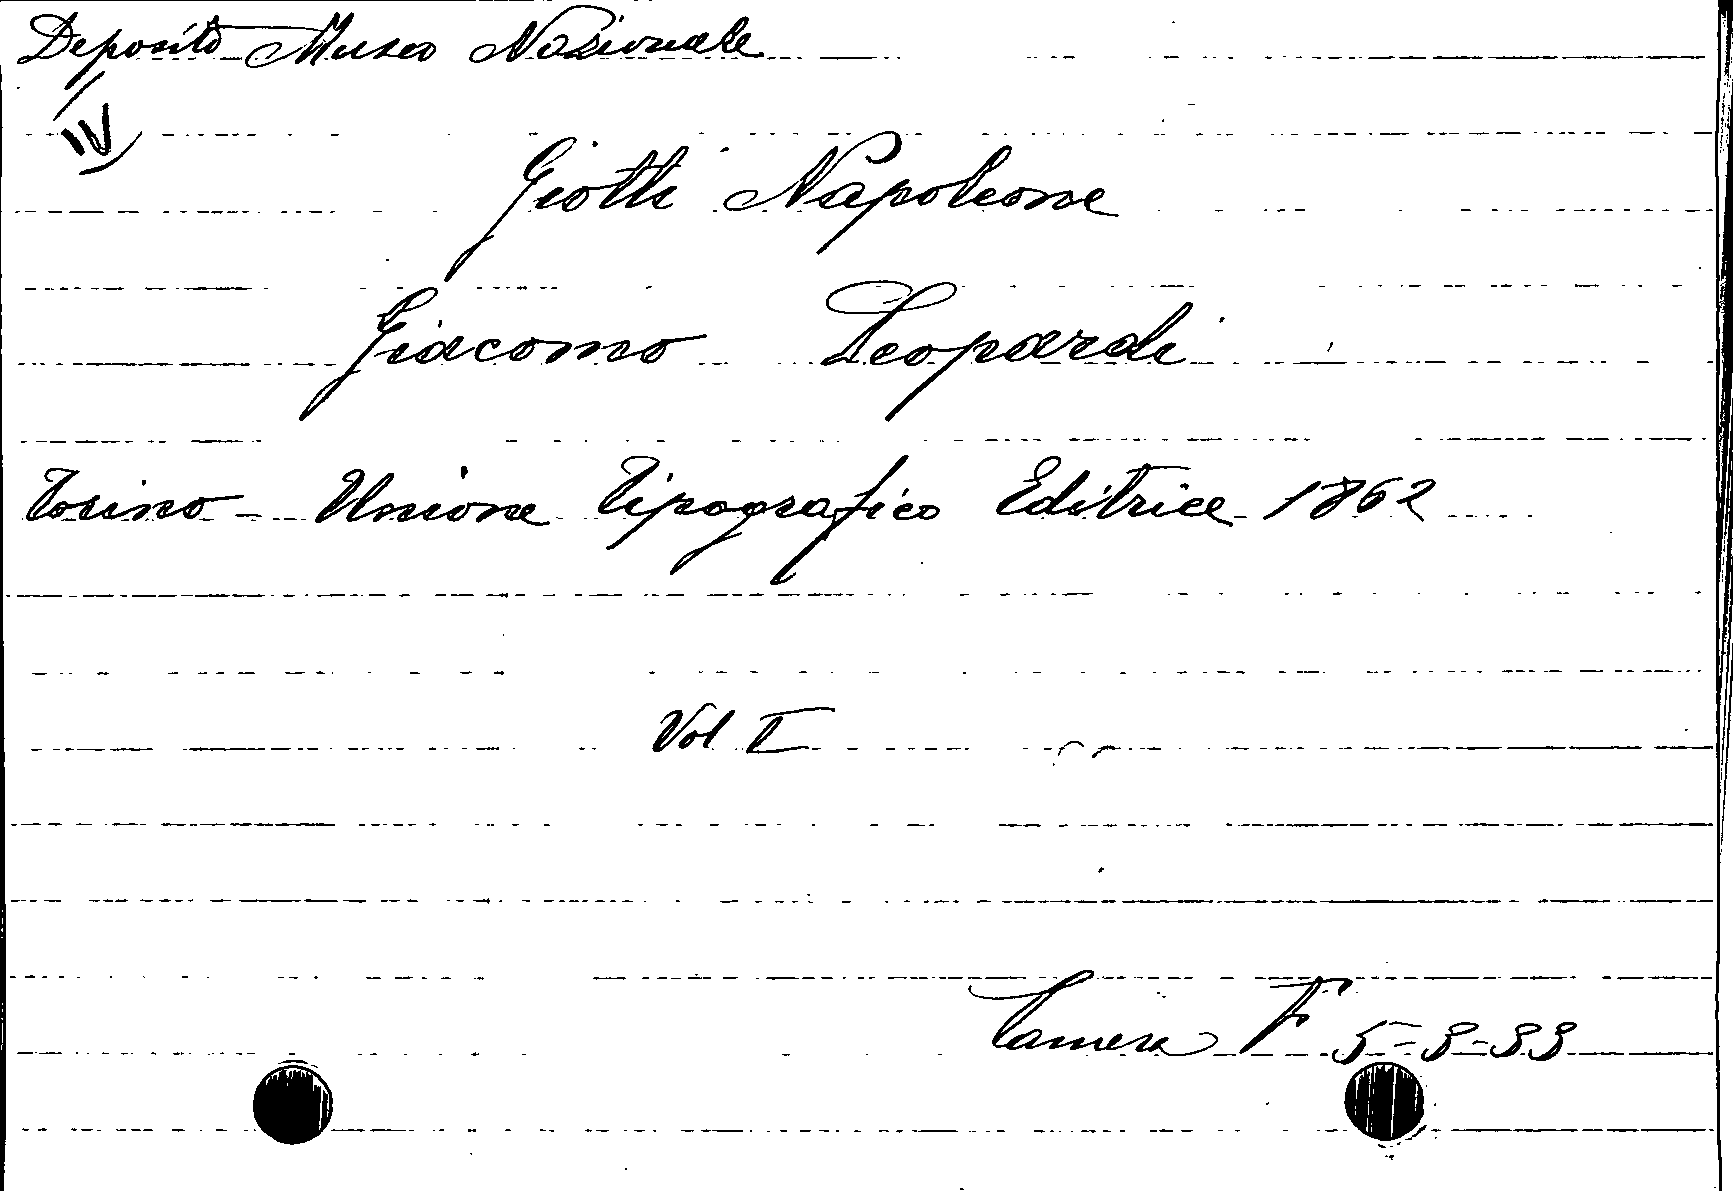 Deposito Museo Nazionale
IV
Giotti Napoleone
Giacomo Leopardi
Torino - Unione Tipografico Editrice 1862
Vol I
Camera F 5-3-33